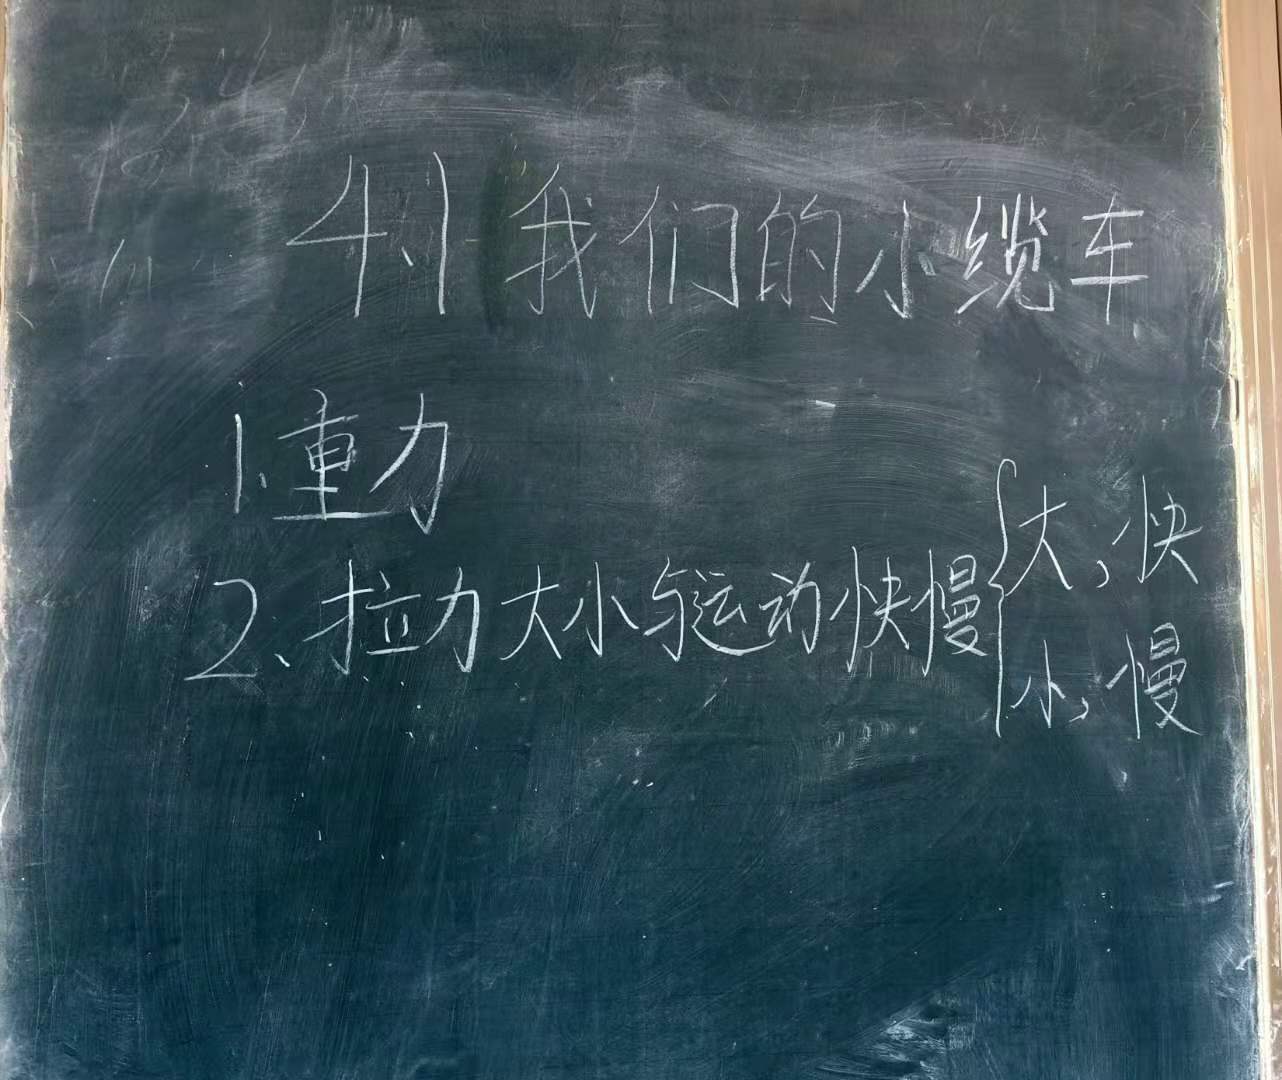 4.1 我们的小缆车
1.重力
2、拉力大小与运动快慢{大,快
小,慢